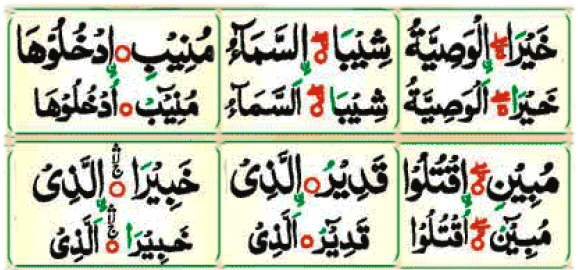 خَيْرَا نِ الْوَصِيَّةُ
خَيْرَا اَلْوَصِيَّةُ
شِيْبَا نِ السَّمَآءُ
شِيْبَا اَلسَّمَآءُ
مُنِيْبِ ○ نِ ادْخُلُوْهَا
مُنِيْبْ ○ اُدْخُلُوْهَا
مُبِيْنِ نِ اقْتُلُوْا
مُبِيْنْ اُقْتُلُوْا
قَدِيْرُ ○ نِ الَّذِىْ
قَدِيْرْ ○ اَلَّذِىْ
خَبِيْرَا ○ نِ الَّذِىْ
خَبِيْرَا ○ اَلَّذِىْ